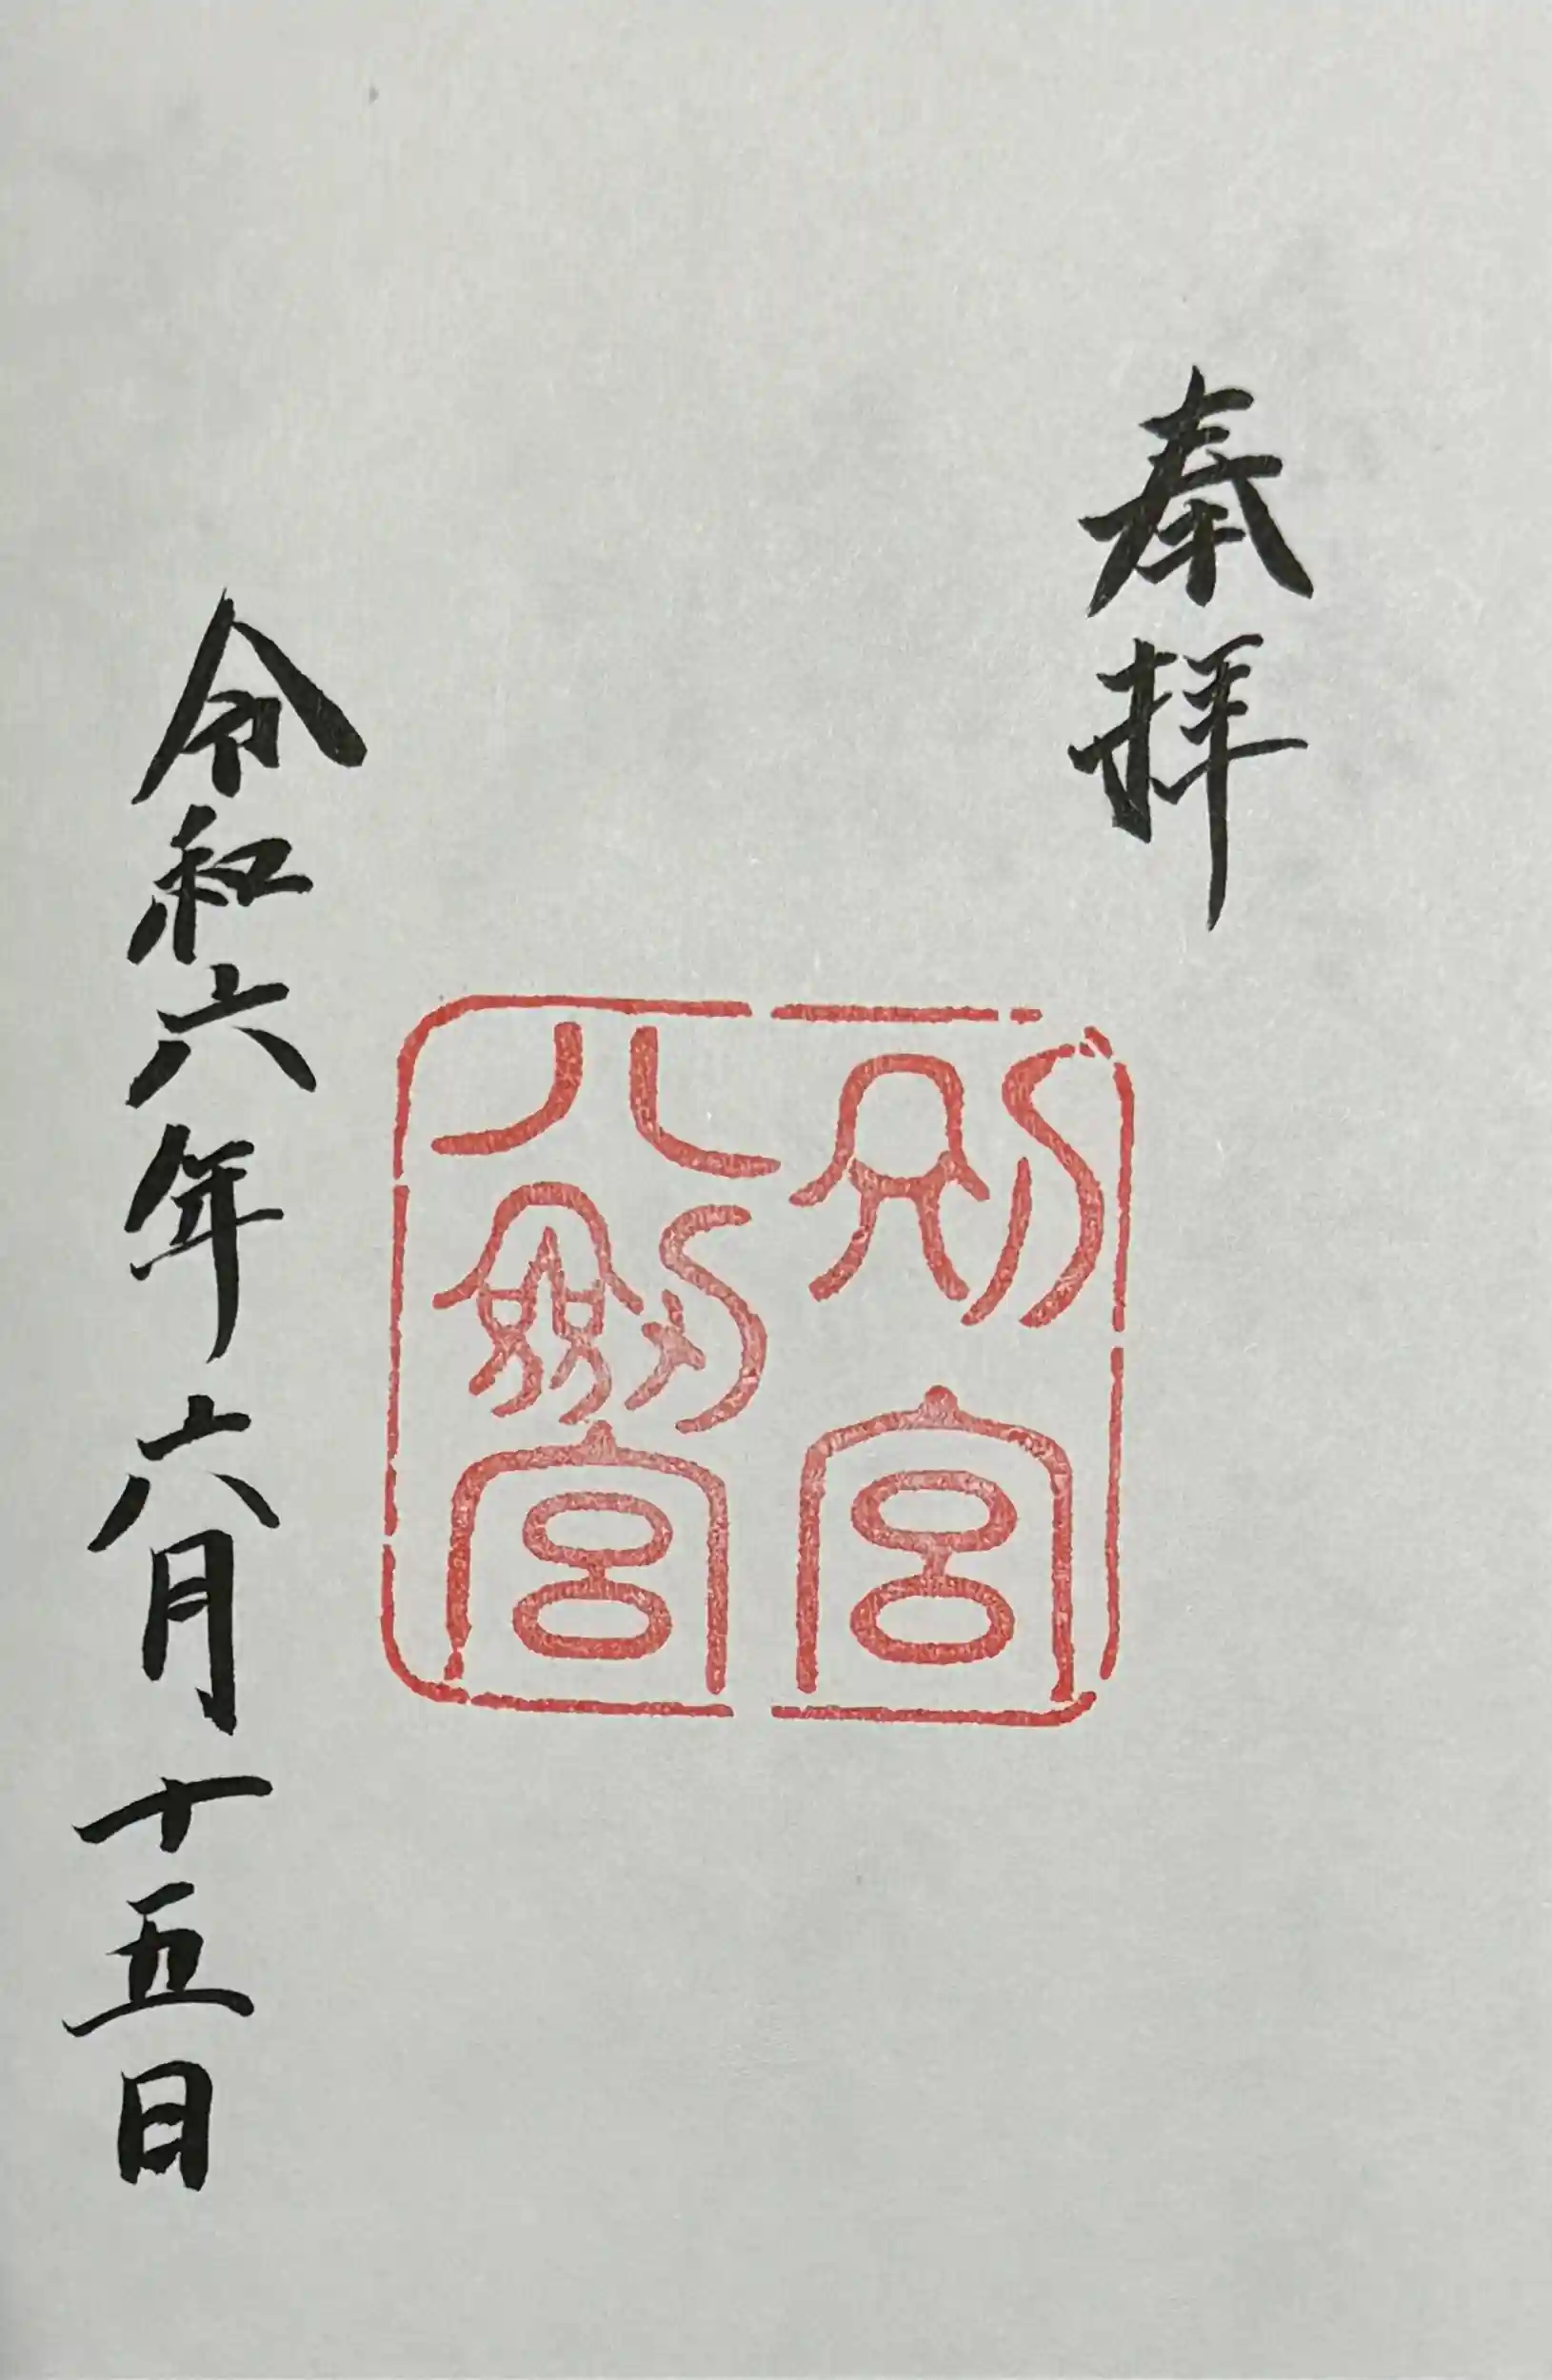 奉拝
別宮
八剱宮
令和六年六月十五日